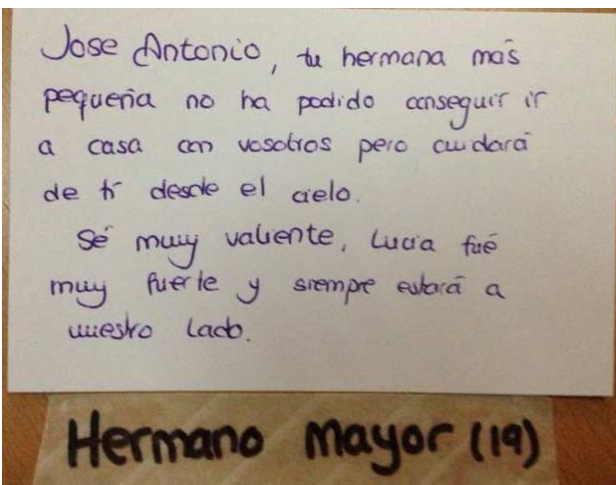 Jose Antonio, tu hermana más
pequeña no ha podido conseguir ir
a casa con vosotros pero cuidará
de tí desde el cielo.
Sé muy valiente, Lucia fué
muy fuerte y siempre estará a
vuestro lado.
Hermano Mayor (19)